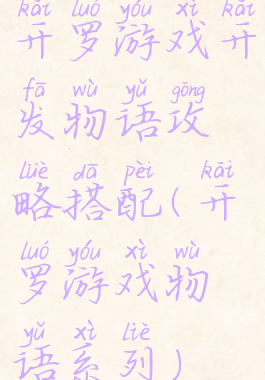 kāi luó yóu xì kāi
开罗游戏开
fā wù yǔ gōng
发物语攻
lüè dā pèi kāi
略搭配(开
luó yóu xì wù
罗游戏物
yǔ xì liè
语系列)